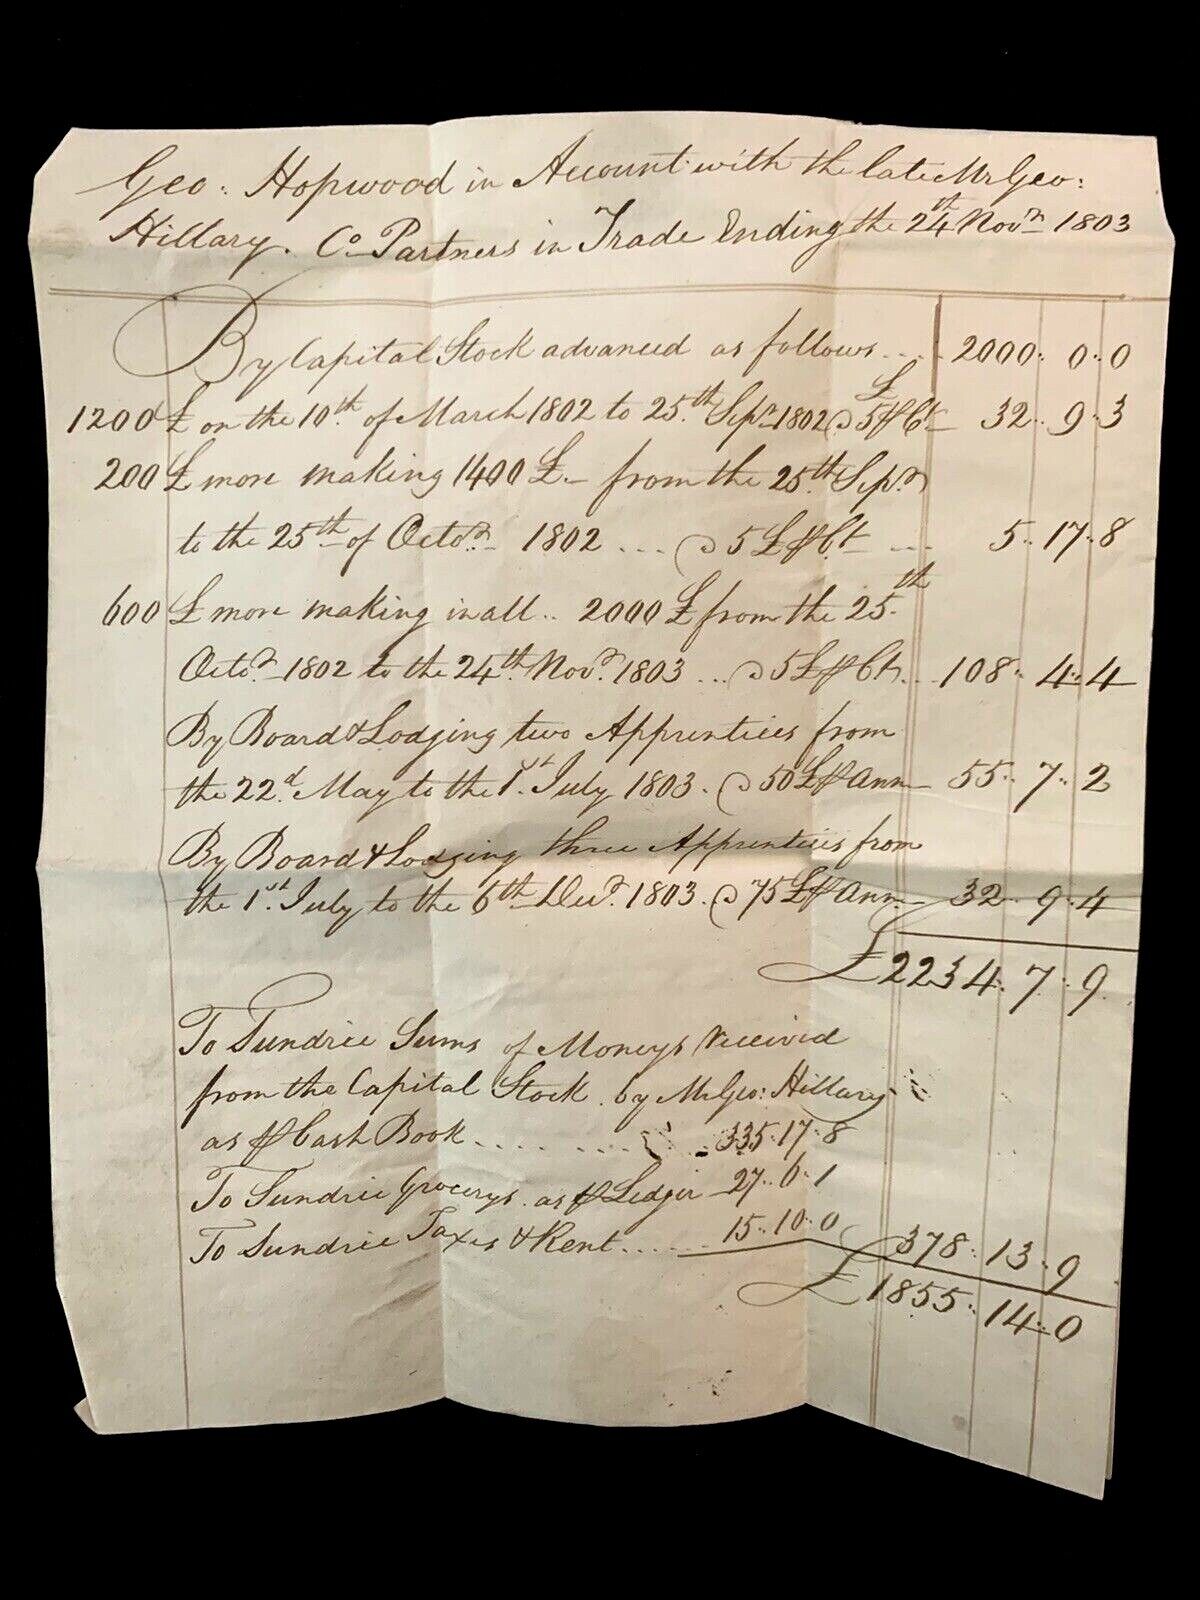 Geo: Hopwood in Account with the late Mr Geo:
Hillary. Co Partners in Trade Ending the 24th Novr 1803
By Capital Stock advanced as follows.... 2000. 0. 0
1200 £ on the 10th of March 1802 to 25th Sepr 1802 @ 5£ ⅌ Ct 32. 9. 3
200 £ more making 1400 £. from the 25th Sepr
to the 25th of Octor 1802 ... @ 5 £ ⅌ Ct ... 5. 17. 8
600 £ more making in all.. 2000 £ from the 25th
Octor 1802 to the 24th Novr 1803 ... @ 5£ ⅌ Ct... 108. 4. 4
By Board & Lodging two Apprentices from
the 22d May to the 1st July 1803. @ 50£ ⅌ Ann 55. 7. 2
By Board & Lodging three Apprentices from
the 1st July to the 6th Decr 1803. @ 75£ ⅌ Ann 32. 9. 4
£2234. 7. 9.
To Sundrie Sums of Moneys Received
from the Capital Stock by Mr Geo: Hillary
as ⅌ Cash Book...... 335. 17. 8
To Sundrie Grocerys. as ⅌ Ledger 27. 6. 1
To Sundrie Taxes & Rent.... 15. 10. 0 378. 13. 9
£1855. 14. 0